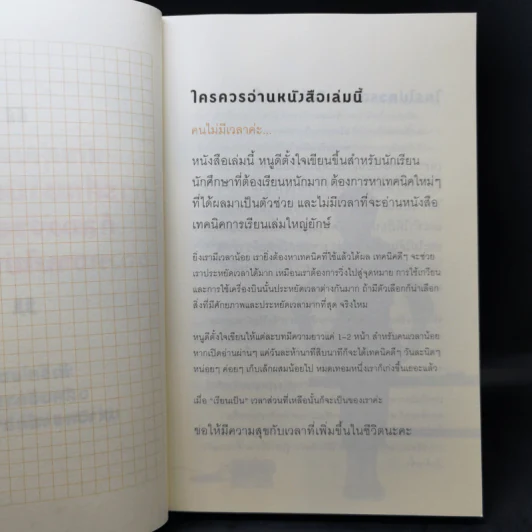 ใครควรอ่านหนังสือเล่มนี้
คนไม่มีเวลาค่ะ...
หนังสือเล่มนี้ หนูดีตั้งใจเขียนขึ้นสำหรับนักเรียน
นักศึกษาที่ต้องเรียนหนักมาก ต้องการหาเทคนิคใหม่ๆ
ที่ได้ผลมาเป็นตัวช่วย และไม่มีเวลาที่จะอ่านหนังสือ
เทคนิคการเรียนเล่มใหญ่ยักษ์
ยิ่งเรามีเวลาน้อย เรายิ่งต้องหาเทคนิคที่ใช้แล้วได้ผล เทคนิคดีๆ จะช่วย
เราประหยัดเวลาได้มาก เหมือนเราต้องการวิ่งไปสู่จุดหมาย การใช้เกวียน
และการใช้เครื่องบินนั้นประหยัดเวลาต่างกันมาก ถ้ามีตัวเลือกก็น่าเลือก
สิ่งที่มีศักยภาพและประหยัดเวลามากที่สุด จริงไหม
หนูดีตั้งใจเขียนให้แต่ละบทมีความยาวแค่ 1-2 หน้า สำหรับคนเวลาน้อย
หากเปิดอ่านผ่านๆ แค่วันละห้านาทีสิบนาทีก็จะได้เทคนิคดีๆ วันละนิดๆ
หน่อยๆ ค่อยๆ เก็บเล็กผสมน้อยไป หมดเทอมหนึ่งเราก็เก่งขึ้นเยอะแล้ว
เมื่อ "เรียนเป็น" เวลาส่วนที่เหลือนั้นก็จะเป็นของเราค่ะ
ขอให้มีความสุขกับเวลาที่เพิ่มขึ้นในชีวิตนะคะ